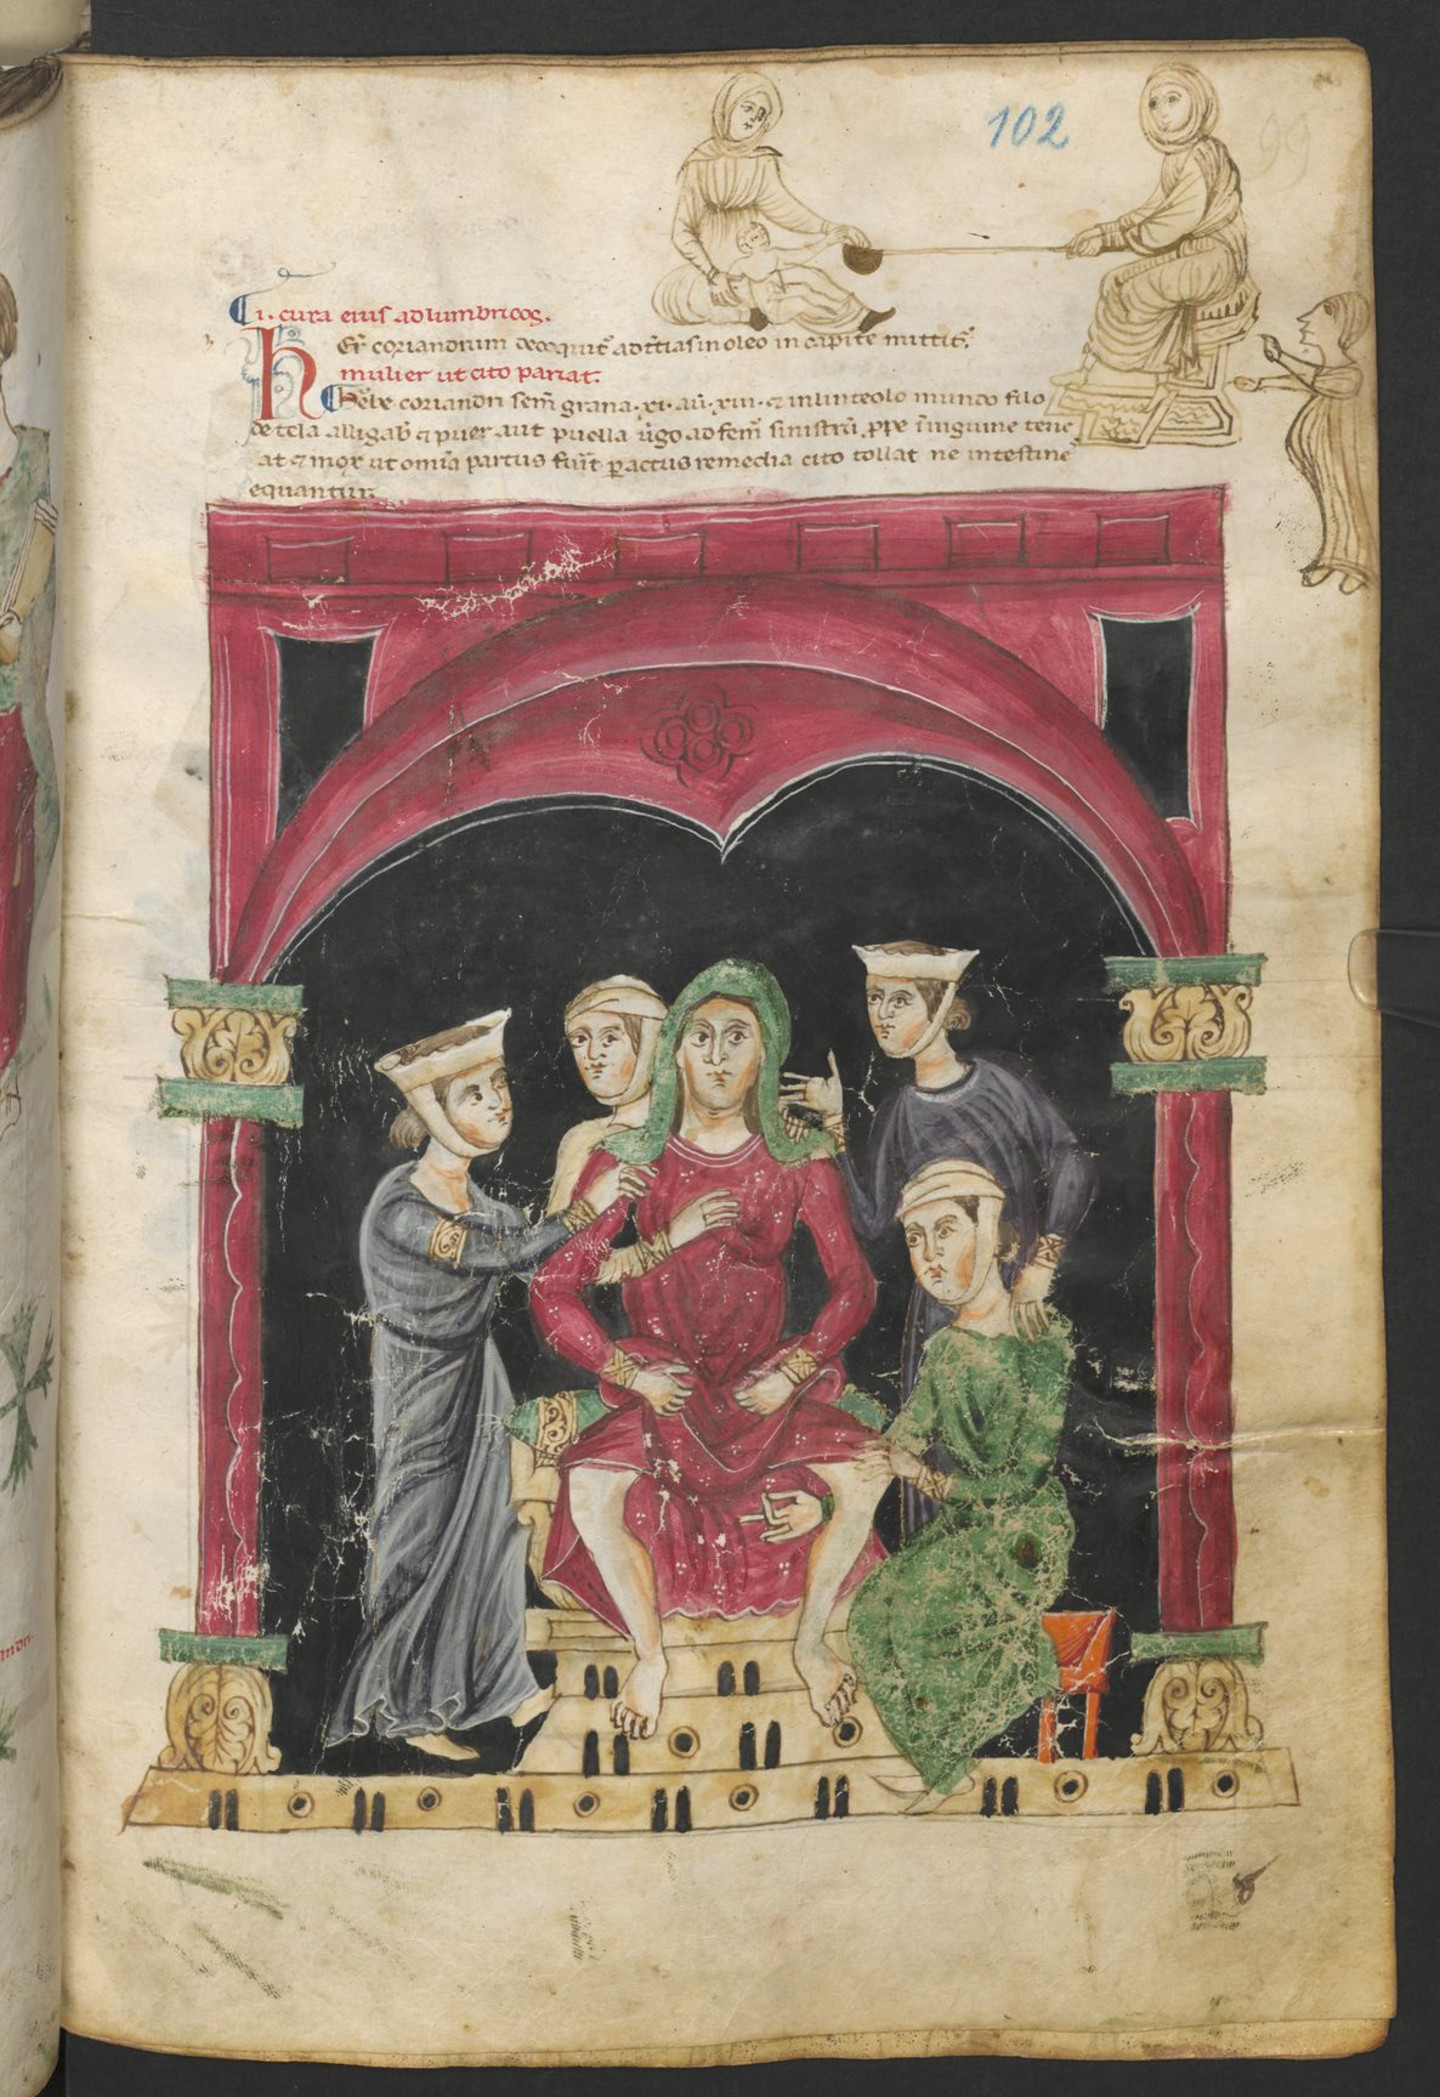 102
99
i. cura eius ad lumbricos.
Her̄ coriandrum decoquit̄ ad t̄tias in oleo in capite mittit̄.
mulier ut cito pariat.
Herbe coriandri sem̄ grana .xi. au .xiii. ⁊ in linteolo mundo filo
de tela alligab ⁊ puer aut puella ügo ad fem̄ sinistrū ꝓpe inguine tene
at ⁊ mox ut omīa partus fuīt ꝑactus remedia cito tollat ne intestine
equantur